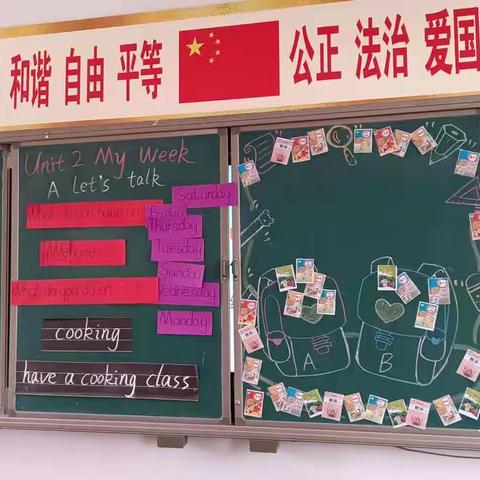 和谐 自由 平等 公正 法治 爱国
Unit 2 My Week
A Let's talk
Saturday
What do you have on
Friday
Thursday
Tuesday
Sunday
What do you do on
Wednesday
Monday
cooking
have a cooking class
A
B